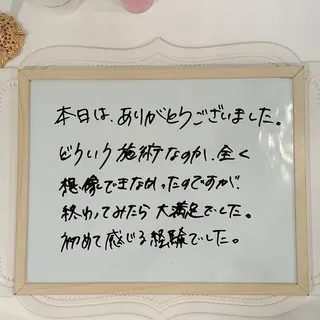 本日は、ありがとうございました。
どういう施術なのか、全く
想像できなかったのですが、
終わってみたら大満足でした。
初めて感じる経験でした。